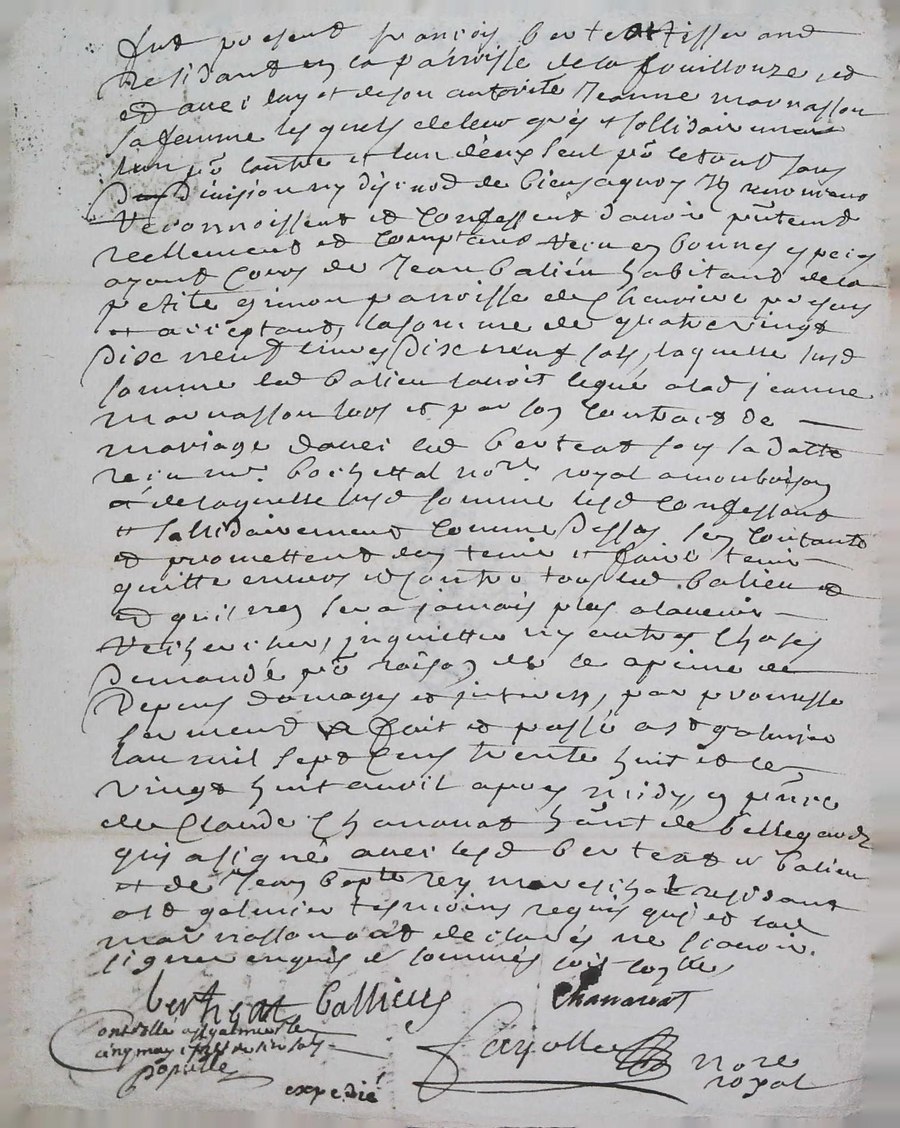 fut present francois berteat tisserand
residant en la parroisse de la fouillouze led
et avec luy et de son autorité Jeanne marnasson
sa femme lesquels de leur gré et sollidairement
lun po lautre et lun deux seul po le tout sans
division ny discud de biens aquoy ils renoncent
reconnoissent et confessent davoir pntemt
reellement et comptant receu en bonnes especes
ayant cours de Jean balieu habitant de la
petite gimon parroisse de chevriere presant
et acceptant, la somme de quatre vingt
disc neuf livres disc neuf sols, laquelle susd
somme led balieu lavoit legué a lad jeanne
marnasson lors et par son contract de
mariage davec led berteat sous sa datte
receu me bochettal nore royal a monbrison
et de laquelle susd somme lesd confessant
et sollidairement comme dessus sen contante
et promettent den tenir et faire tenir
quitte envers et contre tous led balieu et
et quil nen sera jamais plus alavenir
recherches, inquietter ny autres choses
demandé po raison de ce a peine de
depens domages et interests, par promesse
serment fait et passé a st galmier
lan mil sept cens trente huit et le
vingt huit avril apres midy, en pnce
de Claude Chanavat hant de bellegarde
qui a signé avec lesd berteat et balieu
et de Jean bapte rey mareschal residant
a st galmier tesmoins requis qui et lad
marnasson ont declarés ne scavoir
signer enquis et sommés
bertheat Ballieu Chanavat
Controllé a st galmier le
cinq may 1738
expedié
nore
royal